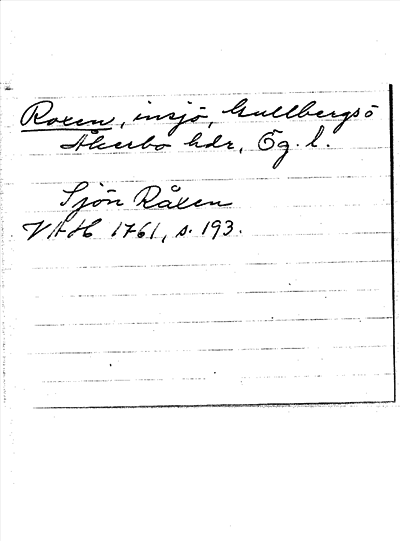 Roxen, insjö, Gullbergs ö
Åkerbo hdr, Ög. l.
Sjön Råxen
VAH 1761, s. 193.